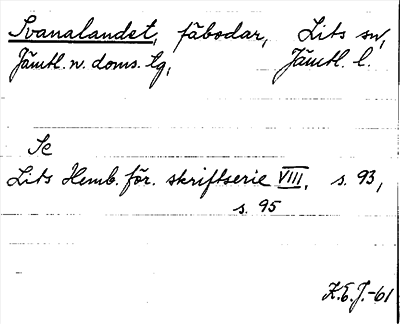 Svanalandet, fäbodar, Lits sn,
Jämtl. n. doms. sg, Jämtl. l.
Se
Lits Hemb. för. skriftserie VIII, s. 93,
s. 95
K.E.J.-61